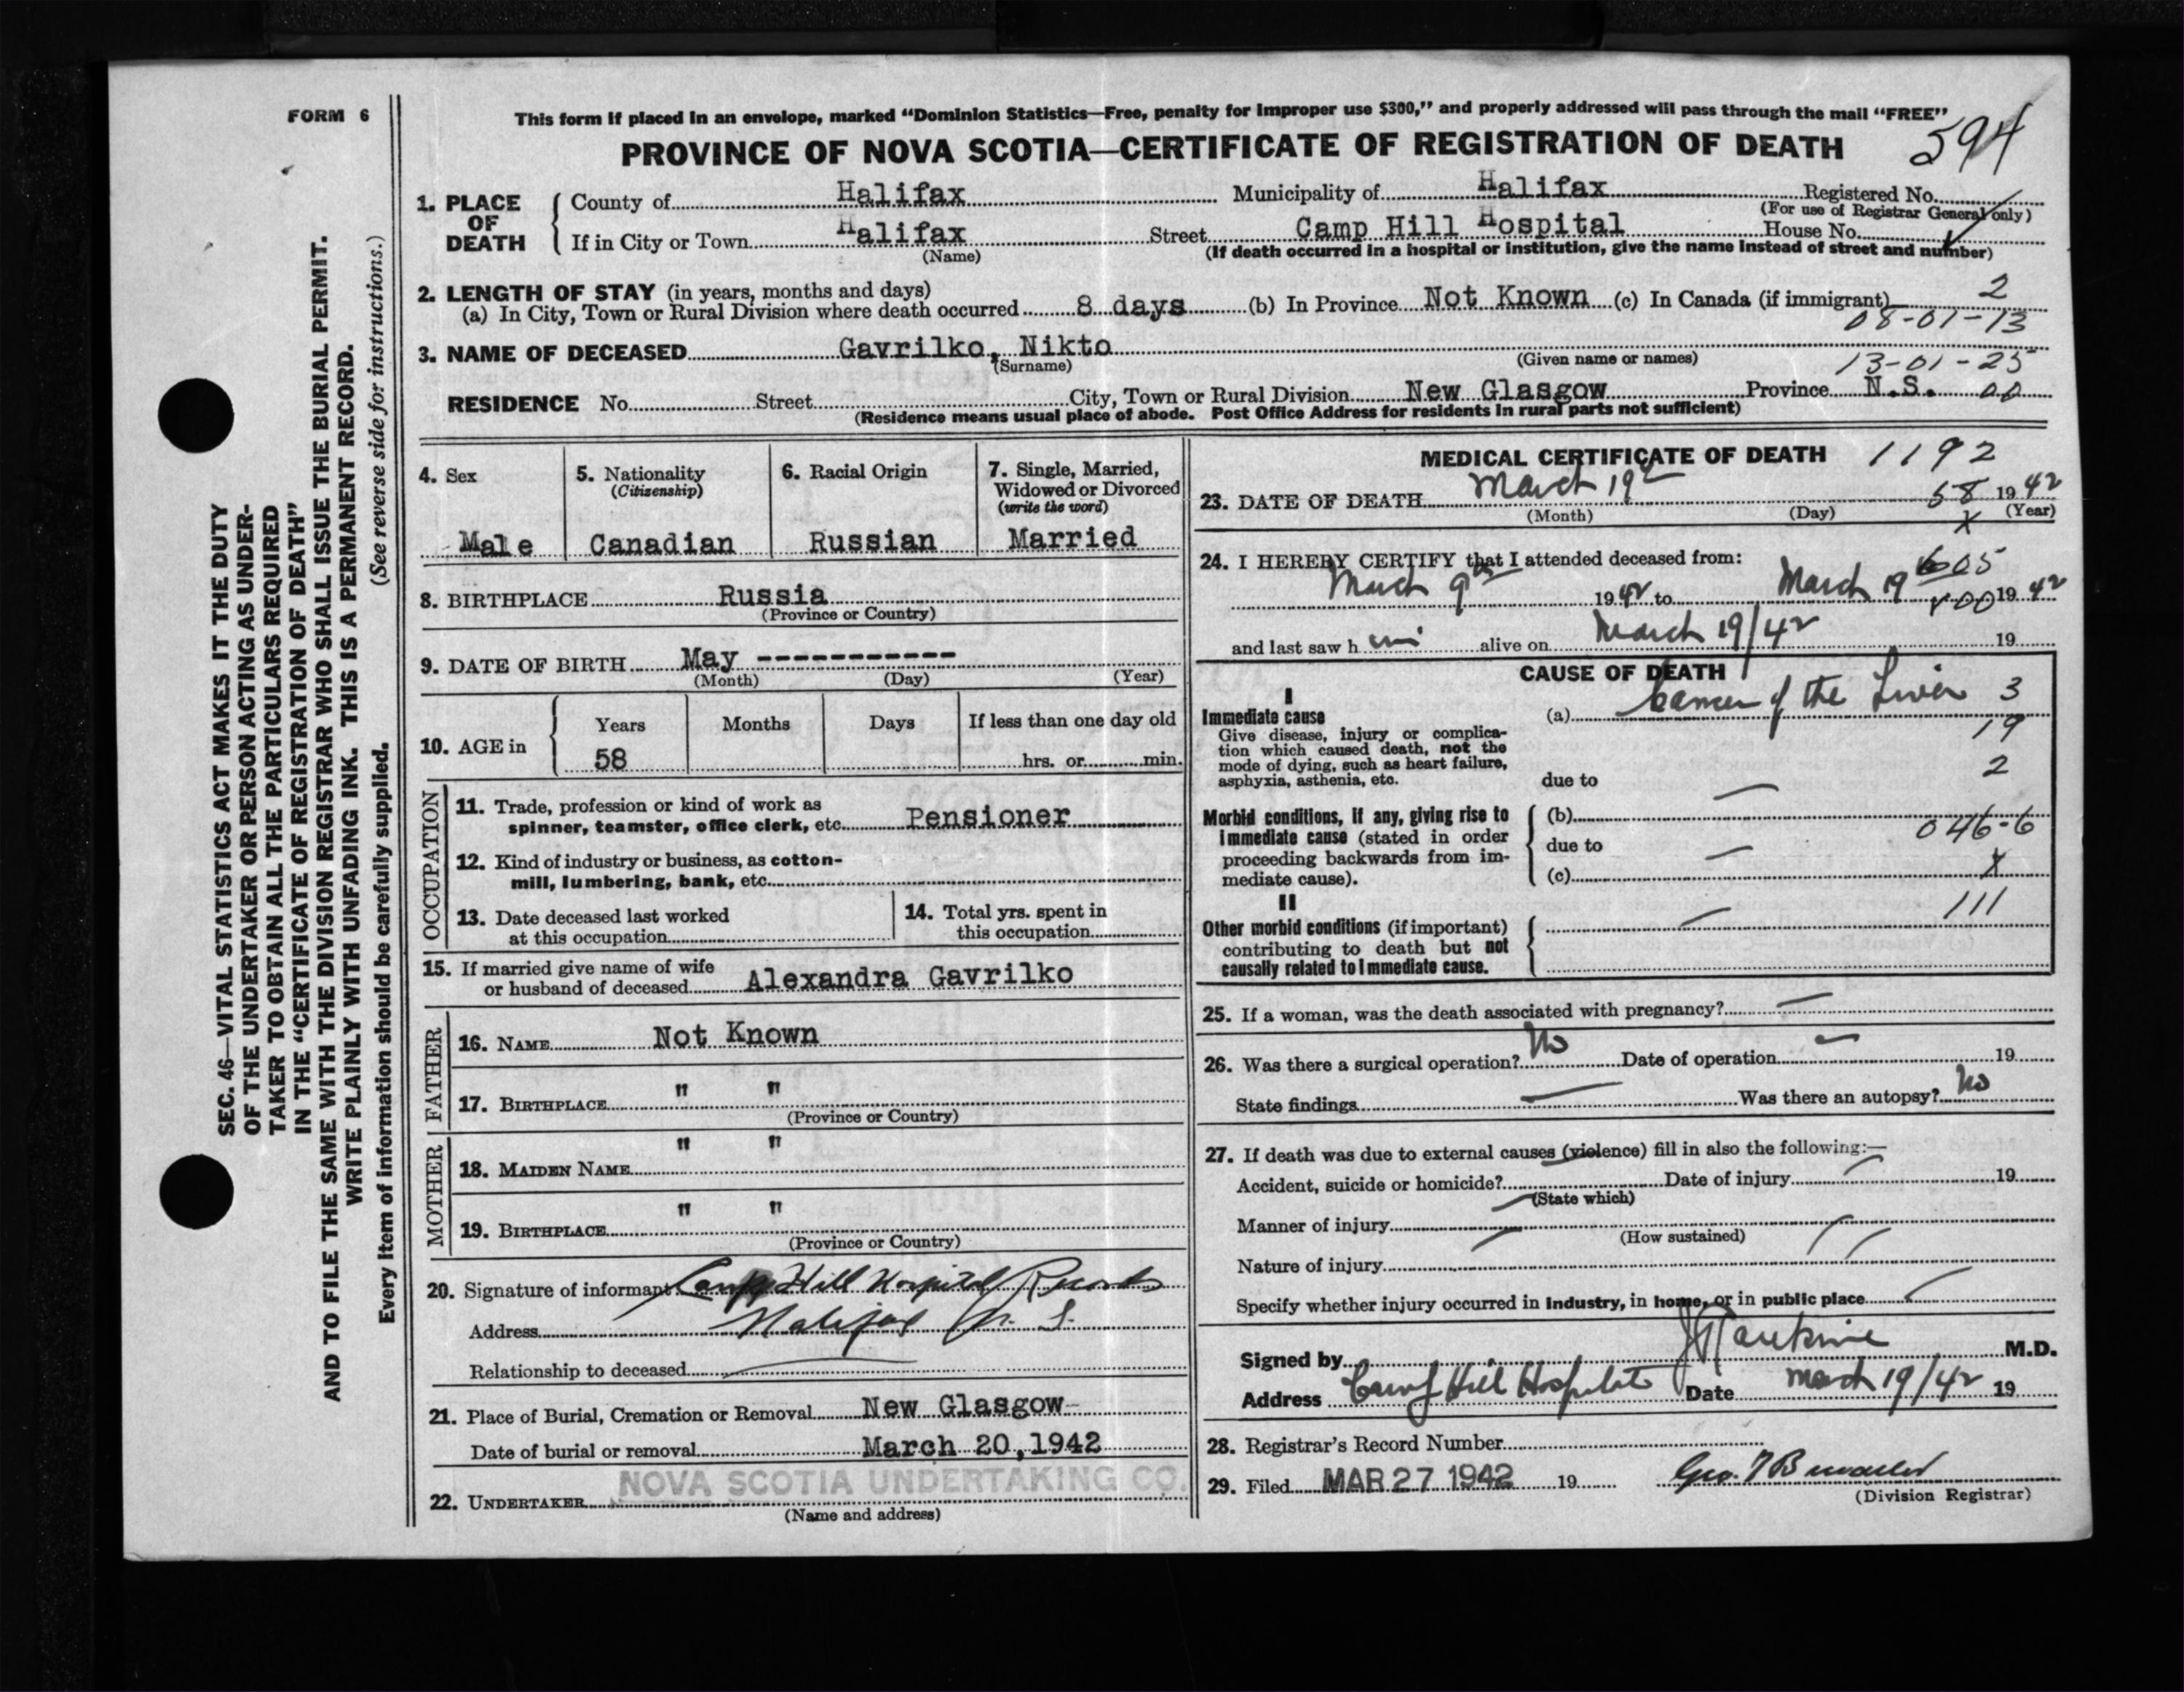 FORM 6
This form if placed in an envelope, marked "Dominion Statistics—Free, penalty for Improper use $300," and properly addressed will pass through the mail "FREE"
PROVINCE OF NOVA SCOTIA—CERTIFICATE OF REGISTRATION OF DEATH 594
1. PLACE OF DEATH
County of Halifax Municipality of Halifax Registered No.
(For use of Registrar General only)
If in City or Town Halifax Street Camp Hill Hospital House No.
(Name) (If death occurred in a hospital or institution, give the name instead of street and number)
2. LENGTH OF STAY (in years, months and days) 2
(a) In City, Town or Rural Division where death occurred 8 days (b) In Province Not Known (c) In Canada (if immigrant)
08-01-13
3. NAME OF DECEASED Gavrilko, Nikto
(Surname) (Given name or names) 13-01-25
RESIDENCE No. Street City, Town or Rural Division New Glasgow Province N.S. 00
(Residence means usual place of abode. Post Office Address for residents in rural parts not sufficient)
4. Sex
Male
5. Nationality
(Citizenship)
Canadian
6. Racial Origin
Russian
7. Single, Married,
Widowed or Divorced
(write the word)
Married
8. BIRTHPLACE Russia
(Province or Country)
9. DATE OF BIRTH May -----------
(Month) (Day) (Year)
10. AGE in
Years Months Days If less than one day old
58 hrs. or min.
OCCUPATION
11. Trade, profession or kind of work as
spinner, teamster, office clerk, etc. Pensioner
12. Kind of industry or business, as cotton-
mill, lumbering, bank, etc.
13. Date deceased last worked
at this occupation
14. Total yrs. spent in
this occupation
15. If married give name of wife
or husband of deceased Alexandra Gavrilko
FATHER
16. NAME Not Known
17. BIRTHPLACE " "
(Province or Country)
MOTHER
18. MAIDEN NAME " "
19. BIRTHPLACE " "
(Province or Country)
20. Signature of informant Camp Hill Hospital Records
Address Halifax N. S.
Relationship to deceased
21. Place of Burial, Cremation or Removal New Glasgow-
Date of burial or removal March 20, 1942
22. UNDERTAKER NOVA SCOTIA UNDERTAKING CO.
(Name and address)
MEDICAL CERTIFICATE OF DEATH 1192
23. DATE OF DEATH March 19 58 1942
(Month) (Day) (Year)
x
24. I HEREBY CERTIFY that I attended deceased from: 605
March 9th 1942 to March 19 1942
and last saw him alive on March 19/42 19
CAUSE OF DEATH
I
Immediate cause
Give disease, injury or complica-
tion which caused death, not the
mode of dying, such as heart failure,
asphyxia, asthenia, etc.
(a) Cancer of the Liver 3
19
2
due to
Morbid conditions, if any, giving rise to
immediate cause (stated in order
proceeding backwards from im-
mediate cause).
(b)
046-6
due to
(c) x
II
Other morbid conditions (if important)
contributing to death but not
causally related to immediate cause.
111
25. If a woman, was the death associated with pregnancy?
26. Was there a surgical operation? No Date of operation 19
State findings Was there an autopsy? No
27. If death was due to external causes (violence) fill in also the following:—
Accident, suicide or homicide? Date of injury 19
(State which)
Manner of injury
(How sustained)
Nature of injury
Specify whether injury occurred in industry, in home, or in public place
Signed by M.D.
Address Camp Hill Hospital Date March 19/42 19
28. Registrar's Record Number
29. Filed MAR 27 1942 19
(Division Registrar)
SEC. 46—VITAL STATISTICS ACT MAKES IT THE DUTY
OF THE UNDERTAKER OR PERSON ACTING AS UNDER-
TAKER TO OBTAIN ALL THE PARTICULARS REQUIRED
IN THE "CERTIFICATE OF REGISTRATION OF DEATH"
AND TO FILE THE SAME WITH THE DIVISION REGISTRAR WHO SHALL ISSUE THE BURIAL PERMIT.
WRITE PLAINLY WITH UNFADING INK. THIS IS A PERMANENT RECORD.
Every item of information should be carefully supplied. (See reverse side for instructions.)